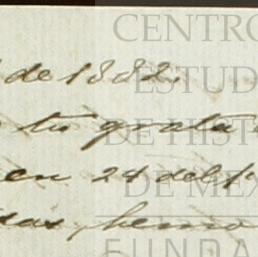 de 1882.
tu grata
en 24 del p
sas, hemo
CENTRO
ESTUD
DE HIST
DE MÉX
FUNDA